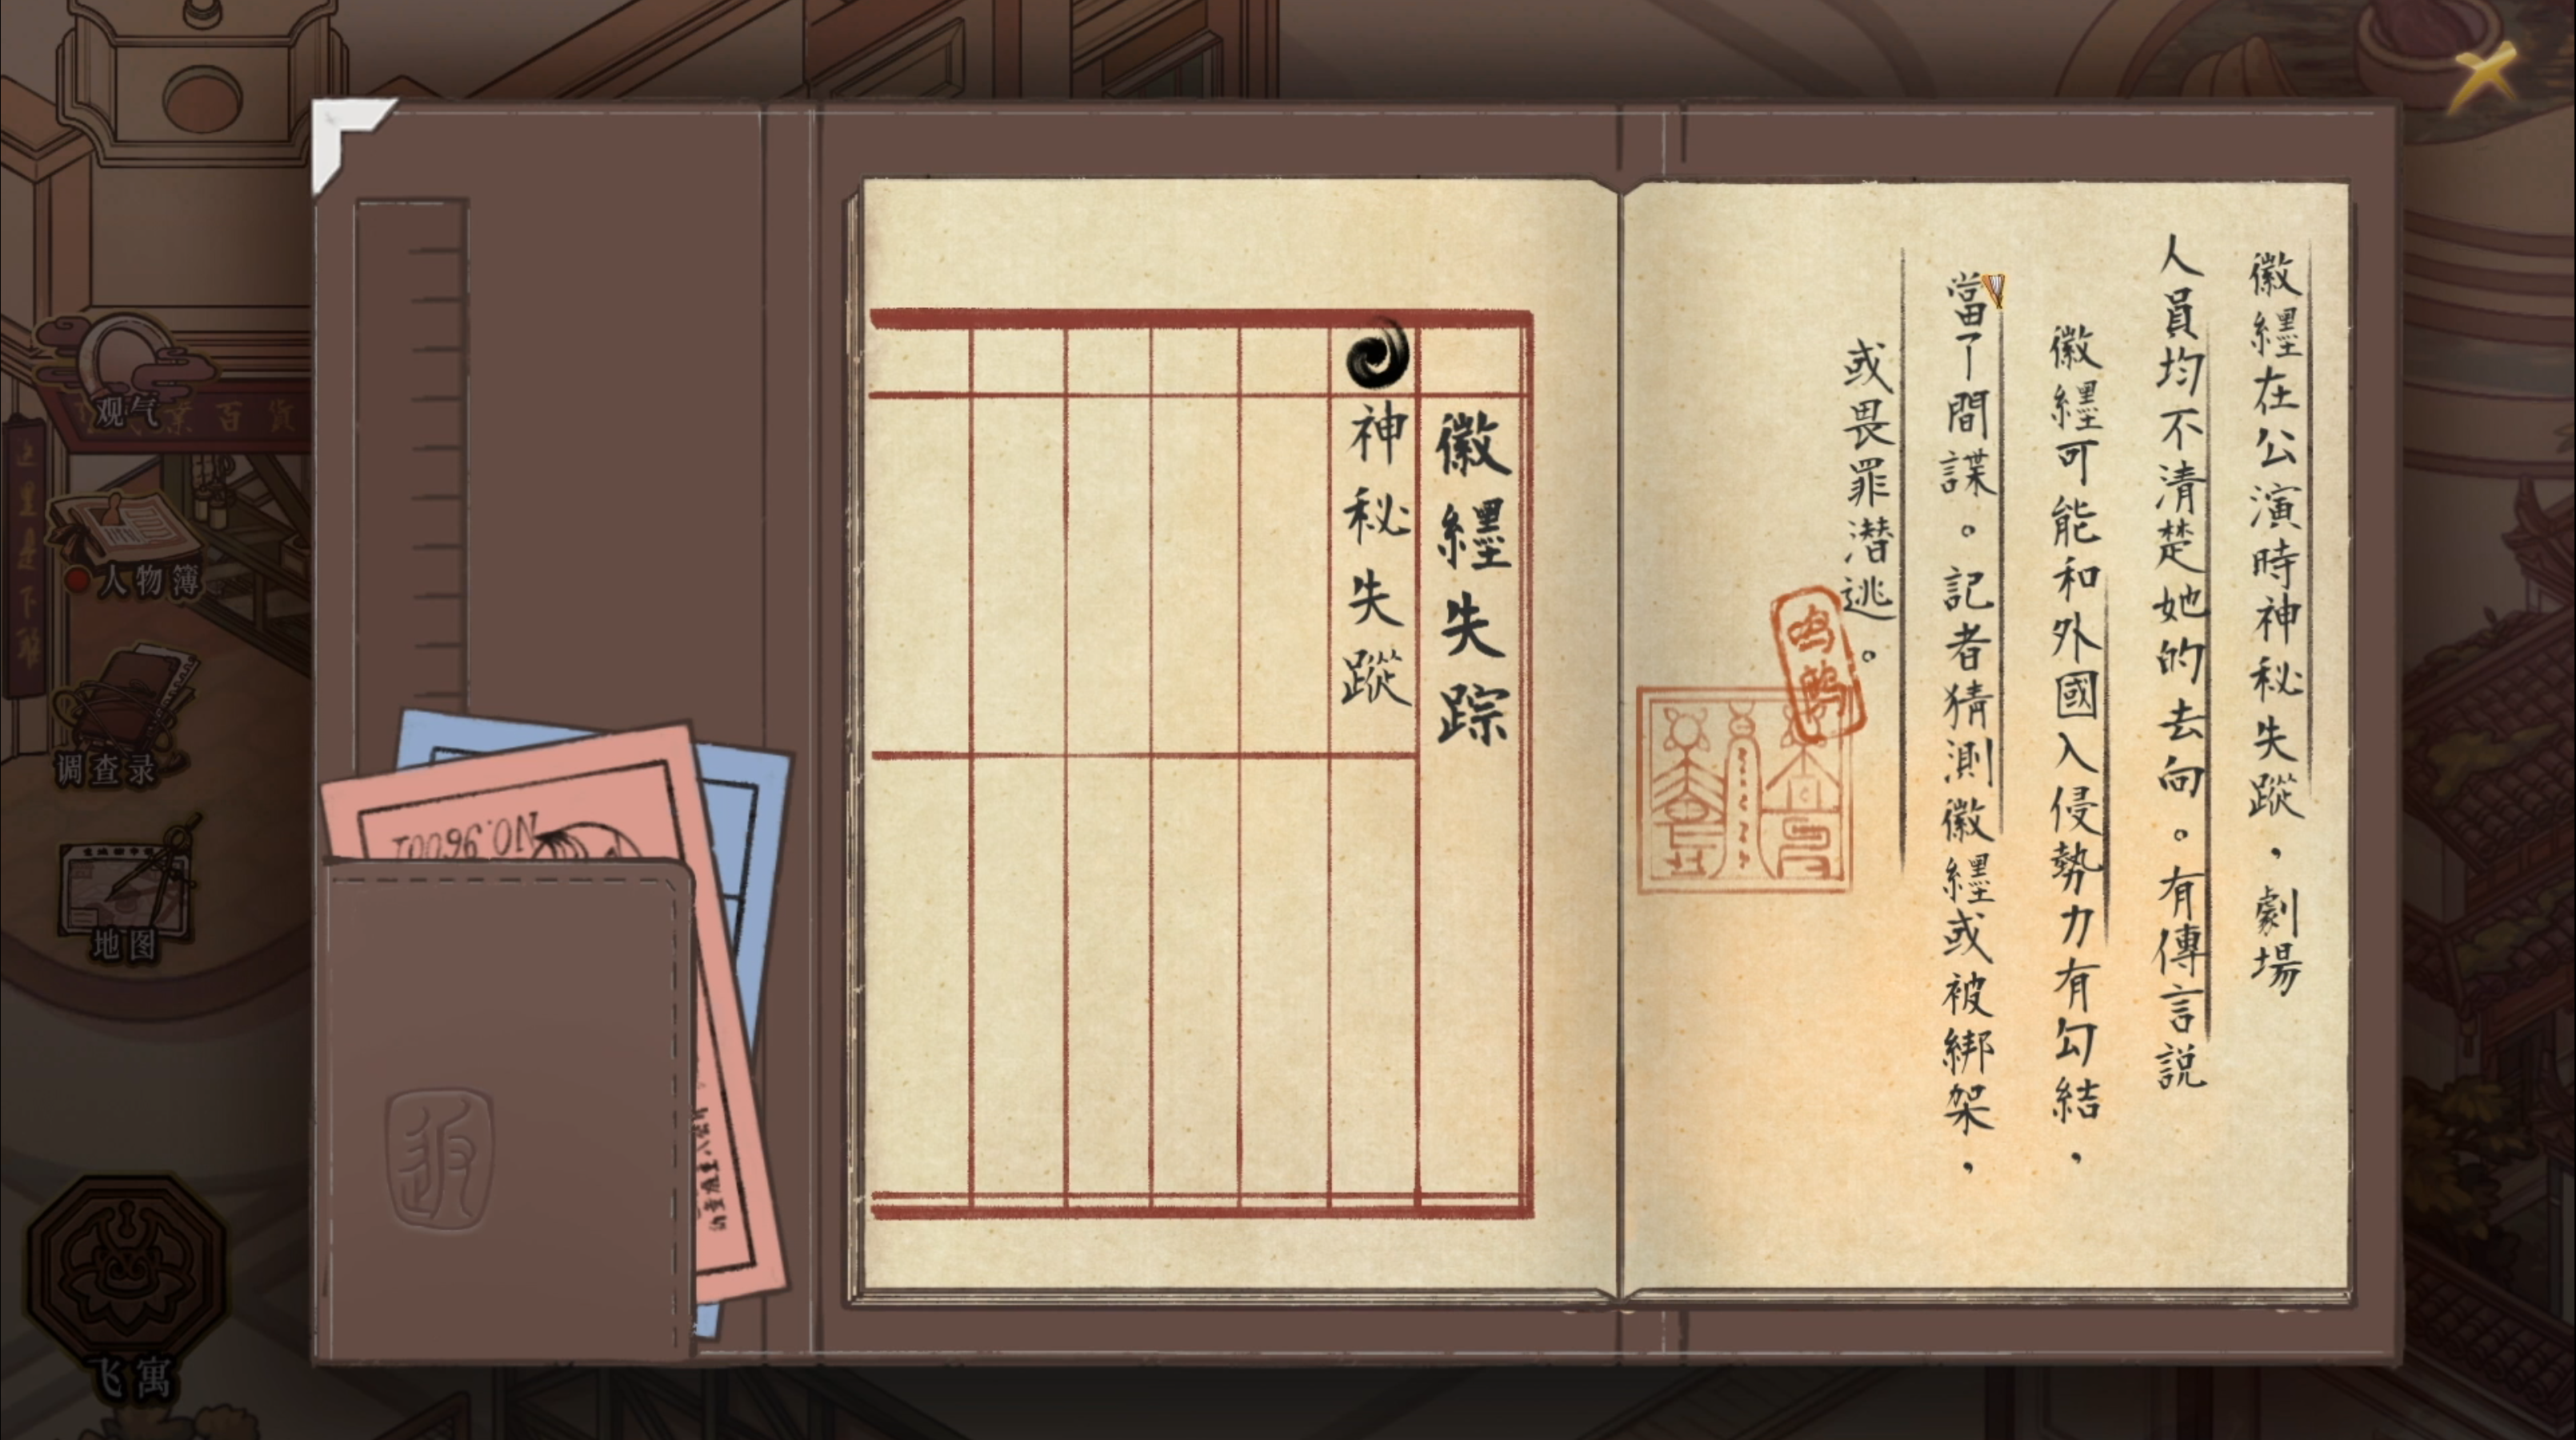 徽纆在公演時神秘失蹤，劇場
人員均不清楚她的去向。有傳言説
徽纆可能和外國入侵勢力有勾結，
當了間諜。記者猜測徽纆或被綁架，
或畏罪潜逃。
徽纆失踪
神秘失蹤
观气
業百貨
人物簿
调查录
地图
飞寓
NO.96001